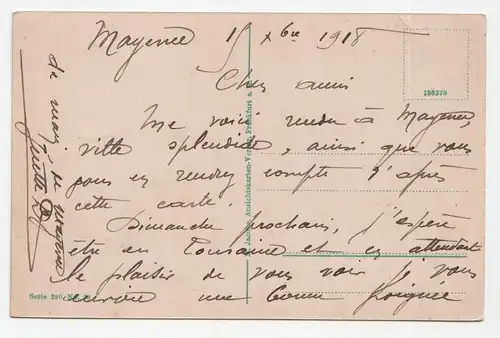 Mayence 15 Xbre 1918
Chers amis
Me voici rendu à Mayence,
ville splendide, ainsi que vous
pous en rendrez compte d'après
cette carte.
Dimanche prochain, j'espère
être en Touraine et en attendant
le plaisir de vous voir je vous
envoie une bonne poignée
de main
198370
Serie 290
Ansichtskarten-Verlag, Frankfurt a.